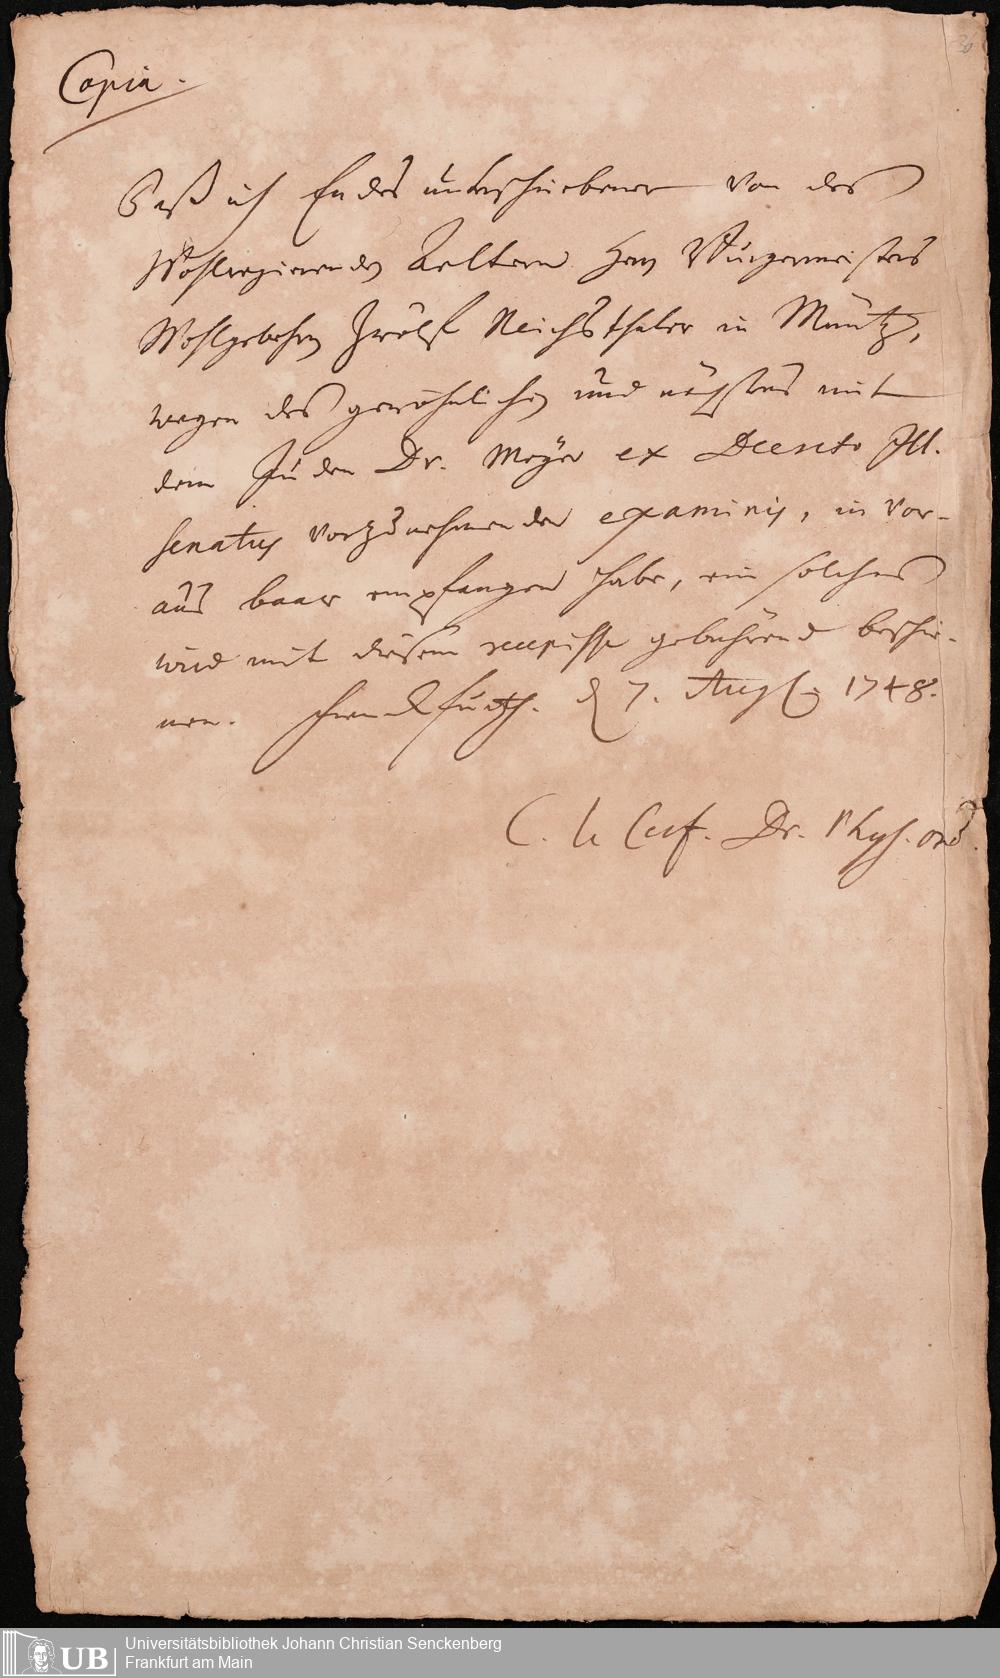 30
Copia.
Daß ich Endes unterschriebener von des
Wohlregierenden Aeltern Herrn Burgermeisters
Wohlgebohrn Zwölf Reichsthaler in Müntz,
wegen des gewöhnlichen und nächstens mit
dem Juden Dr. Meyer ex Decreto Ill.
Senatus vorzunehmenden examinis, in vor-
aus baar empfangen habe, ein solches
wird mit diesem recepisse gebührend beschie-
nen. Franckfurth. d 7. Augl. 1748.
C. le Cerf. Dr. Phys. ord.
UB
Universitätsbibliothek Johann Christian Senckenberg
Frankfurt am Main